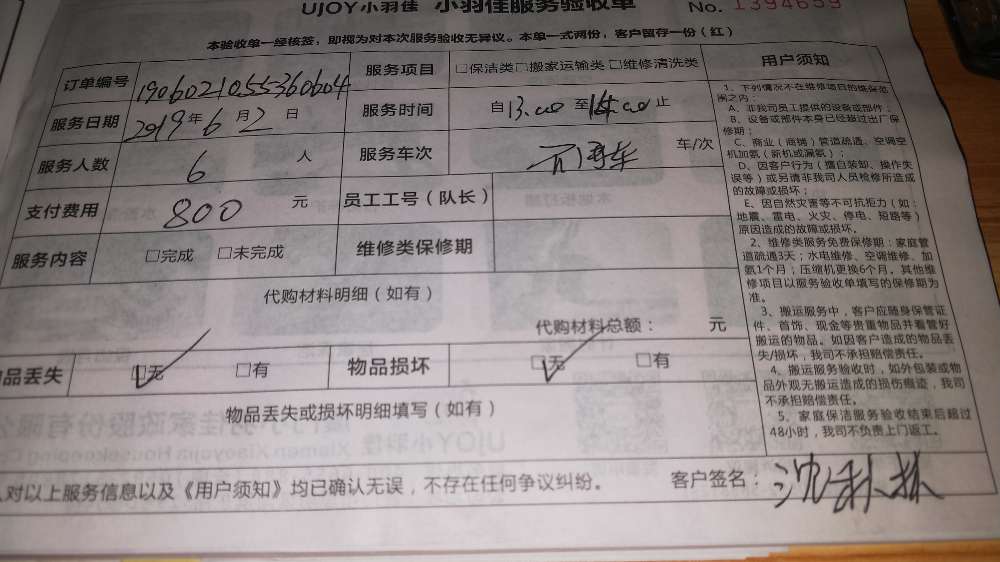 UJOY小羽佳 小羽佳服务验收单 No. 1394659
本验收单一经核签，即视为对本次服务验收无异议。本单一式两份，客户留存一份（红）
订单编号 1906021055360604 服务项目 □保洁类□搬家运输类 □维修清洗类
服务日期 2019年6月2日 服务时间 自13.00至 止
服务人数 6 人 服务车次 车/次
支付费用 800 元 员工工号（队长）
服务内容 □完成 □未完成 维修类保修期
代购材料明细（如有）
代购材料总额： 元
品丢失 □无 □有 物品损坏 □无 □有
物品丢失或损坏明细填写（如有）
对以上服务信息以及《用户须知》均已确认无误，不存在任何争议纠纷。 客户签名：沈
用户须知
1、下列情况不在维修项目的维保范
围之内：
A、非我司员工提供的设备或部件；
B、设备或部件本身已经超过出厂保
修期；
C、商业（商铺）管道疏通、空调空
机加氨（新机或漏氨）；
D、因客户行为（擅自装卸、操作失
误等）或另请非我司人员检修所造成
的故障或损坏；
E、因自然灾害等不可抗拒力（如：
地震、雷电、火灾、停电、短路等）
原因造成的故障或损坏。
2、维修类服务免费保修期：家庭管
道疏通3天；水电维修、空调维修、加
氨1个月；压缩机更换6个月。其他维
修项目以服务验收单填写的保修期为
准。
3、搬运服务中，客户应随身保管证
件、首饰、现金等贵重物品并看管好
搬运的物品。如因客户造成的物品丢
失/损坏，我司不承担赔偿责任。
4、搬运服务验收时，如外包装或物
品外观无搬运造成的损伤痕迹，我司
不承担赔偿责任。
5、家庭保洁服务验收结束后超过
48小时，我司不负责上门返工。